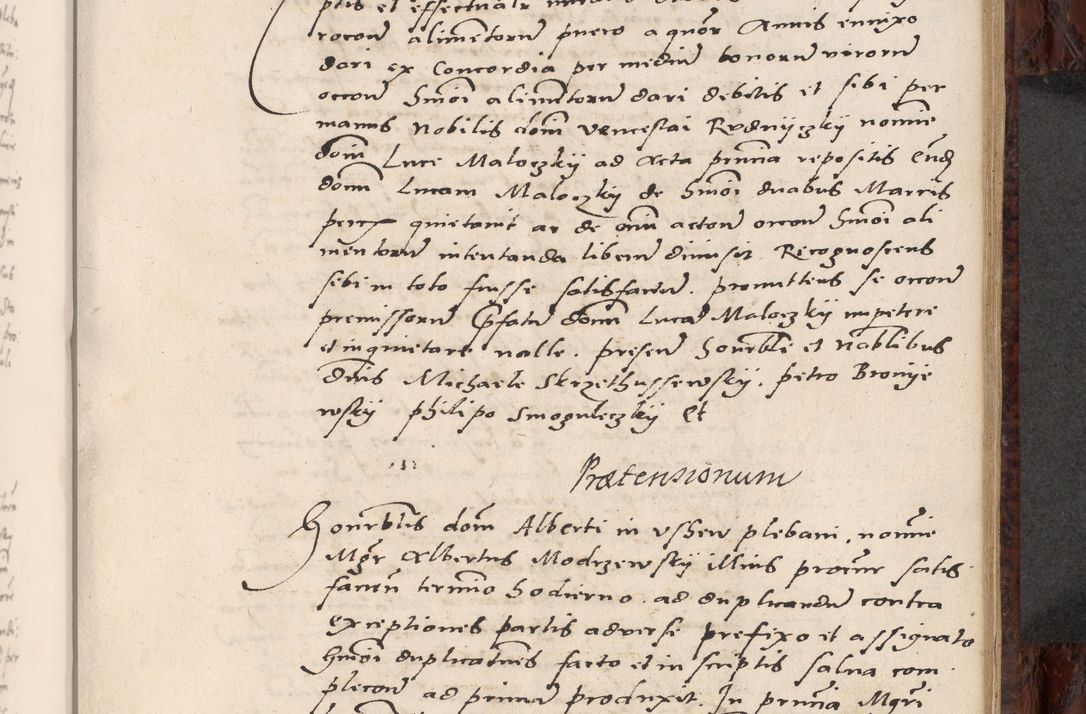 ptis et effectualr
rocon̄ alimentorum puero a quor Annis
dari ex Concordia per medium bonorum virorum
occon̄ hm̄oi alimentorum dari debitis et sibi per
manus Nobilis dom̄ venceslai Rudnyczkÿ noīe
dom̄ Luce Maloczkÿ ad Acta pn̄cia repositis eund
dom̄m Lucam Maloczkÿ de hm̄oi duabus Marcis
quietauit ac de om̄i action̄ occon̄ hm̄oi ali
mentorum intentanda liberum dimisit Recognoscens
sibi in toto fuisse satisfactum. promittens se occon̄
premissorum prefatum dom̄ Lucam Maloczkÿ impetere
et inquietare nolle. presen̄ honrbli et Nobilibus
dn̄is Michaele Skrzethussewskÿ. petro Bronÿe
wskÿ philipo Smoguleczkÿ et
Prætensionum
Honrblis dom̄ Alberti in Vsħew plebani, noīe
Mgr̄ Albertus Modrzewskÿ illius procur satis
facien̄ termino hodierno. ad duplicandum contra
exceptiones partis aduerse prefixo et assignato
hm̄oi duplicatn̄es facto et in scriptis salua com
plecon̄ ad primum produxit. In pn̄cia Mgr̄i